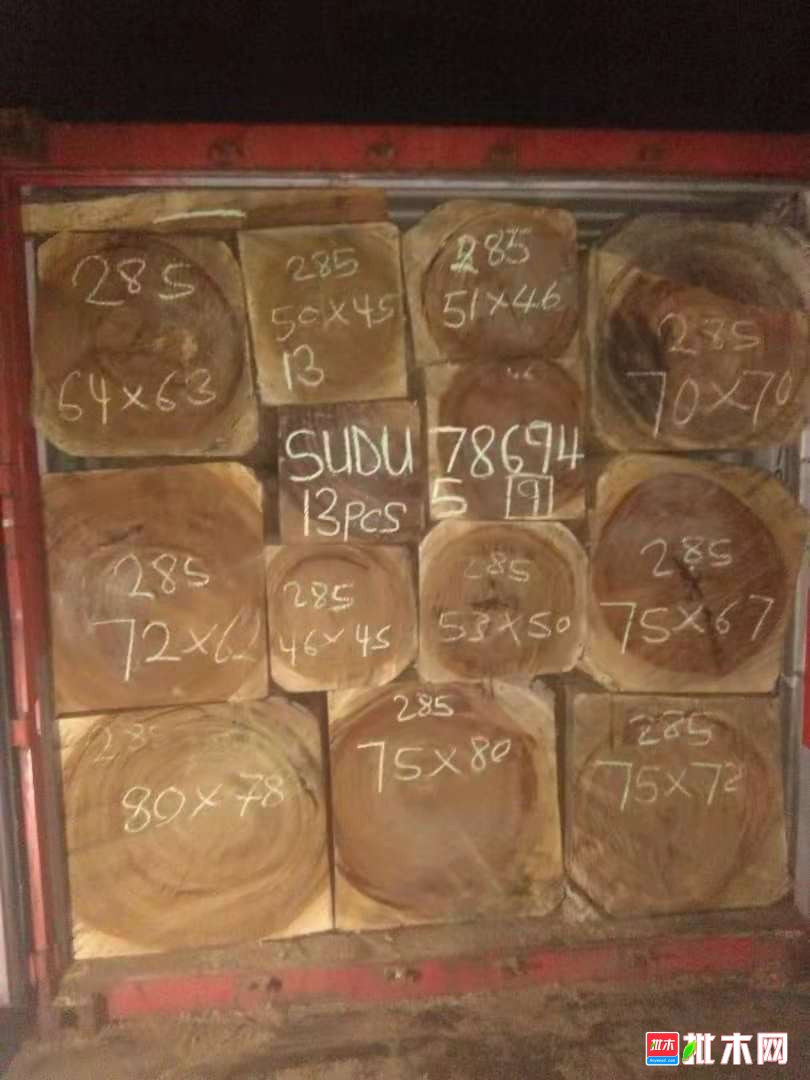 285
64×63
285
50×45
13
285
51×46
285
70×70
SUDU 78694
13pcs 5 9
285
72×62
285
46×45
285
53×50
285
75×67
285
80×78
285
75×80
285
75×72
批木网
批木